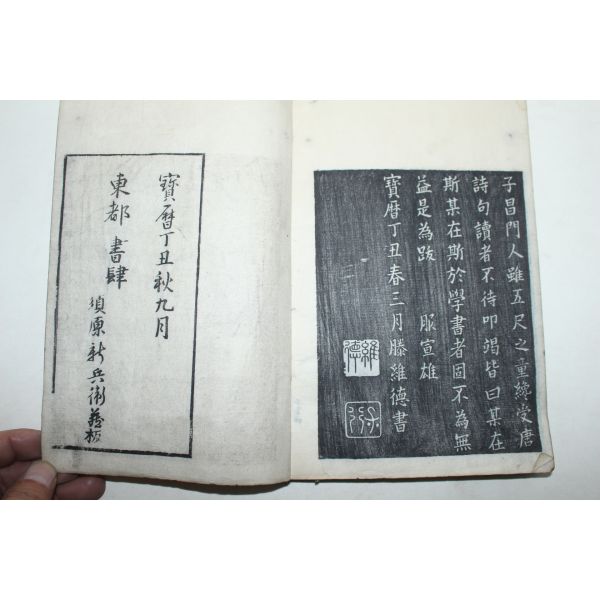 子昌門人雖五尺之童纔受唐
詩句讀者不待叩竭皆曰某在
斯某在斯於學書者固不為無
益是為跋　服宣雄
寶曆丁丑春三月滕維德書
維德
寶曆丁丑秋九月
東都　書肆
須原新兵衛藏板